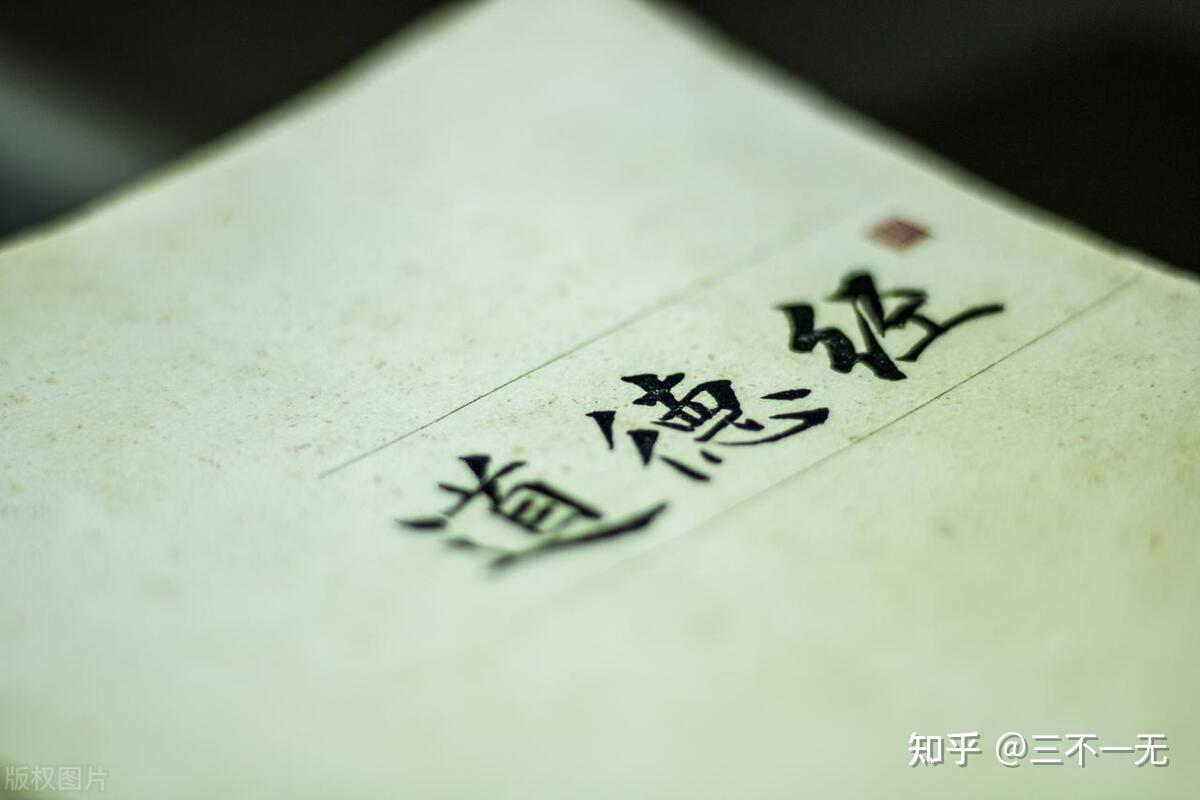 道德经
知乎 @三不一无
版权图片